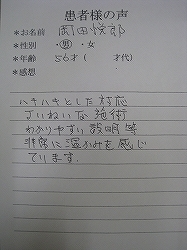 患者様の声
*お名前 岡田悦郎
*性別 ・男 ・女
*年齢 56才( 才代)
*感想
ハキハキとした対応
ていねいな施術
わかりやすい説明等
非常に温かみを感じ
ています。